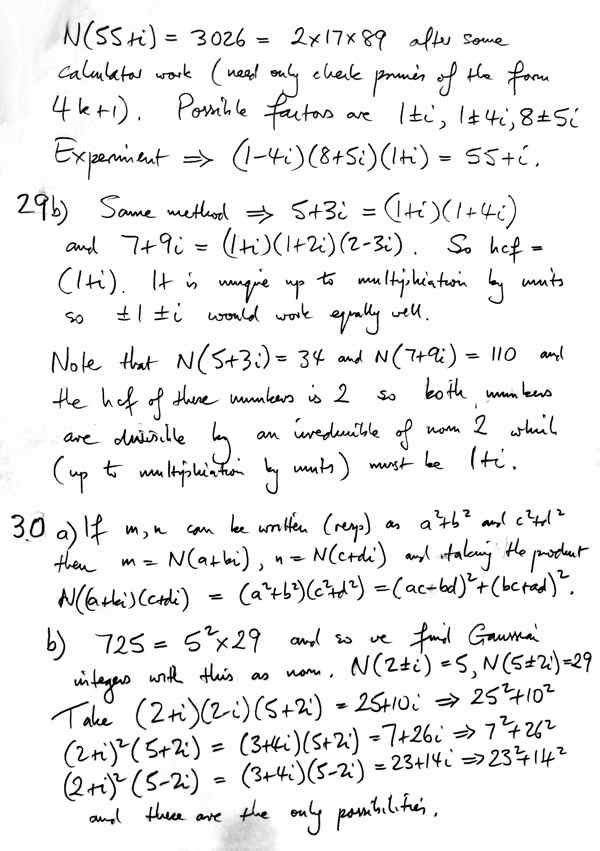 N(55+i) = 3026 = 2×17×89 after some
calculator work (need only check primes of the form
4k+1). Possible factors are 1±i, 1±4i, 8±5i
Experiment ⇒ (1-4i)(8+5i)(1+i) = 55+i.
29b) Same method ⇒ 5+3i = (1+i)(1+4i)
and 7+9i = (1+i)(1+2i)(2-3i). So hcf =
(1+i). It is unique up to multiplication by units
so ±1 ±i would work equally well.
Note that N(5+3i) = 34 and N(7+9i) = 110 and
the hcf of these numbers is 2 so both numbers
are divisible by an irreducible of norm 2 which
(up to multiplication by units) must be 1+i.
30 a) If m,n can be written (resp) as a²+b² and c²+d²
then m = N(a+bi), n = N(c+di) and taking the product
N((a+bi)(c+di) = (a²+b²)(c²+d²) = (ac-bd)²+(bc+ad)².
b) 725 = 5²×29 and so we find Gaussian
integers with this as norm. N(2±i) = 5, N(5±2i) = 29
Take (2+i)(2-i)(5+2i) = 25+10i ⇒ 25²+10²
(2+i)²(5+2i) = (3+4i)(5+2i) = 7+26i ⇒ 7²+26²
(2+i)²(5-2i) = (3+4i)(5-2i) = 23+14i ⇒ 23²+14²
and these are the only possibilities.